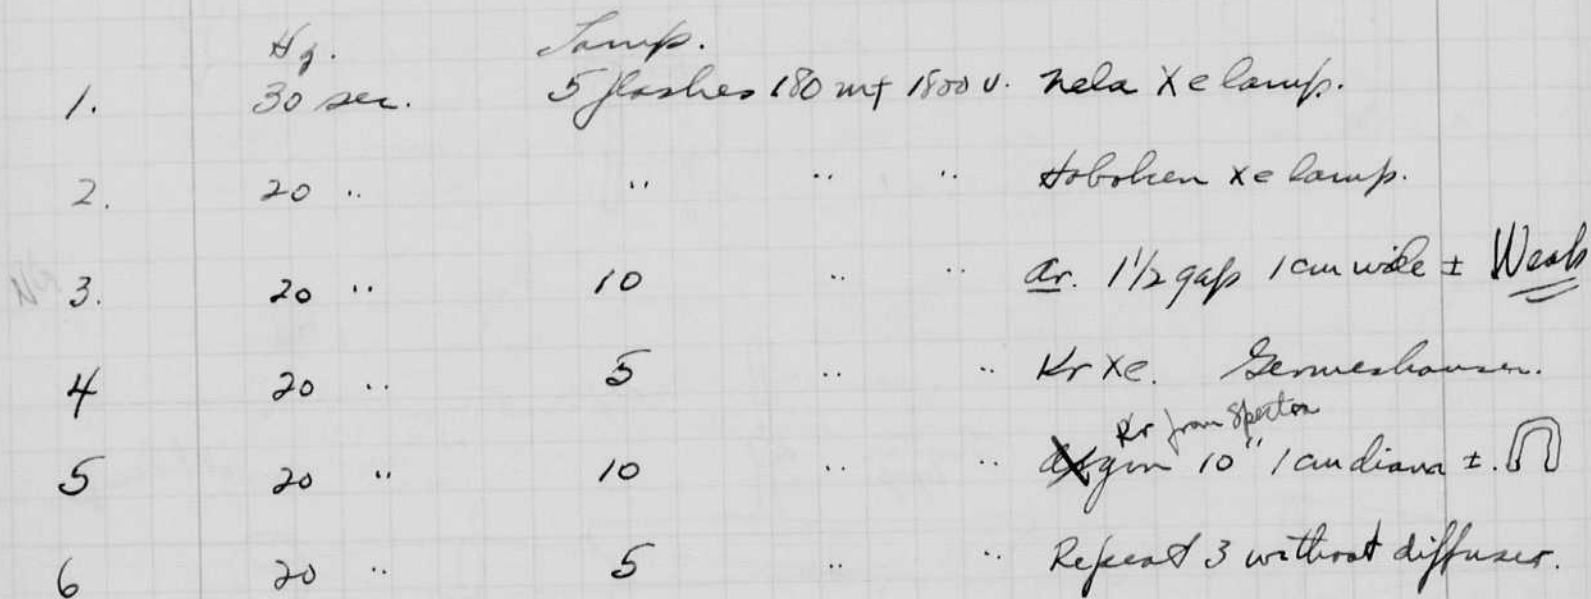 Hg. Lamp.
1. 30 sec. 5 flashes 180 mf 1800 v. Nela Xe lamp.
2. 20 " " " " Hoboken Xe lamp.
3. 20 " 10 " " Ar. 1 1/2 gap 1 cm wide ± Weak
4 20 " 5 " " Kr Xe. Germeshausen.
Kr from
5 20 " 10 " " Argon 10" 1 cm diam ±.
6 20 " 5 " " Repeat 3 without diffuser.